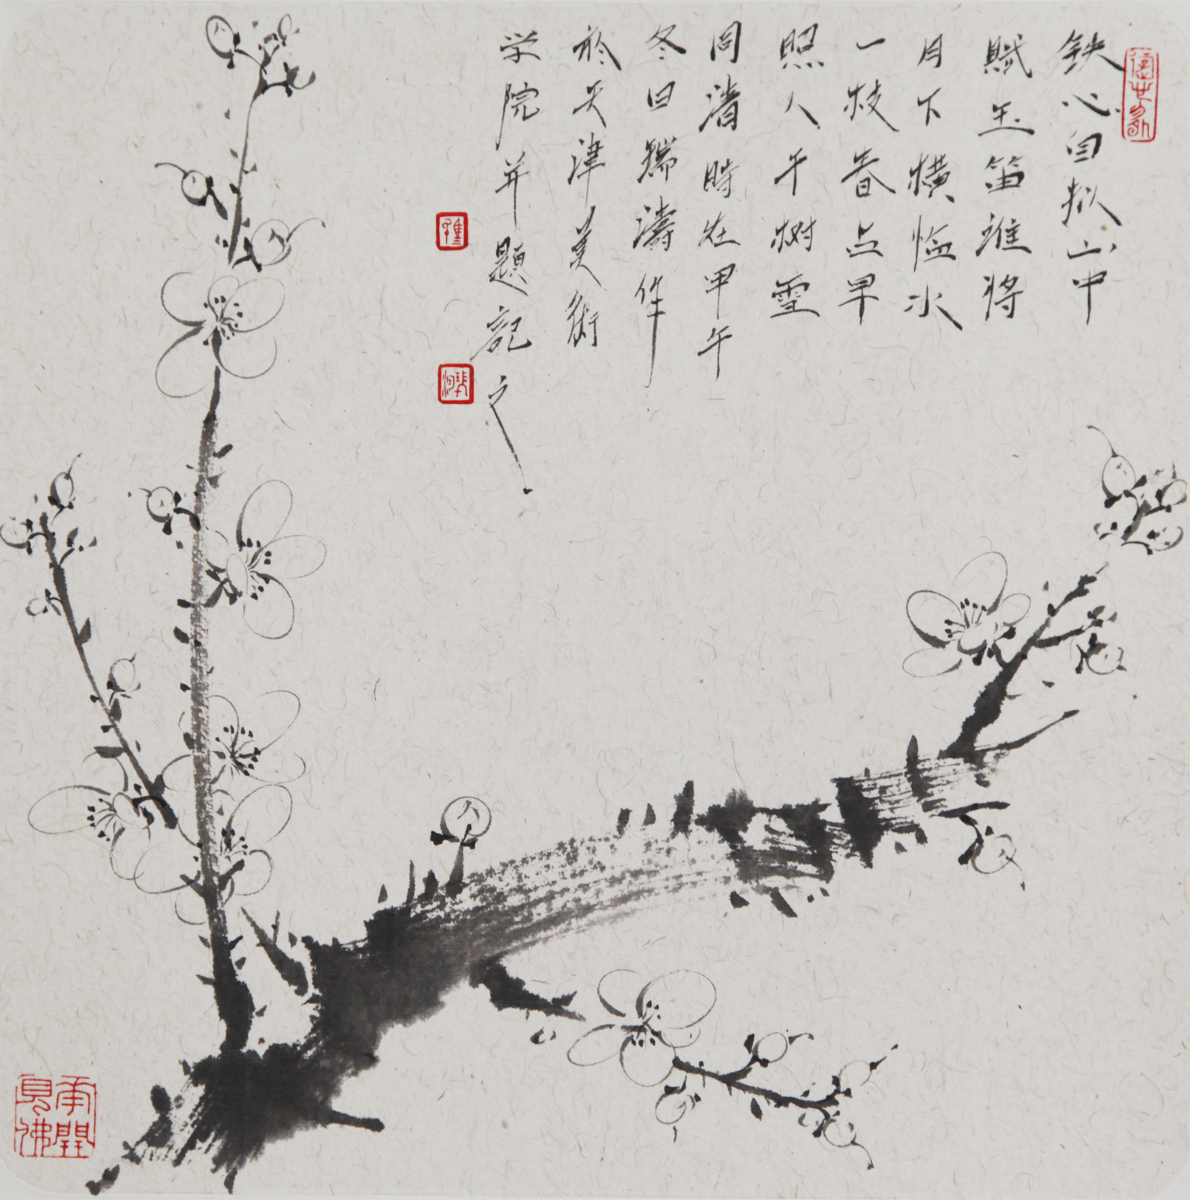 鉄心自拟山中
賦玉笛谁将
月下横临水
一枝春占早
照人千树雪
同清時在甲午
冬日瑞濤作
於天津美術
学院并題記之
花開見佛